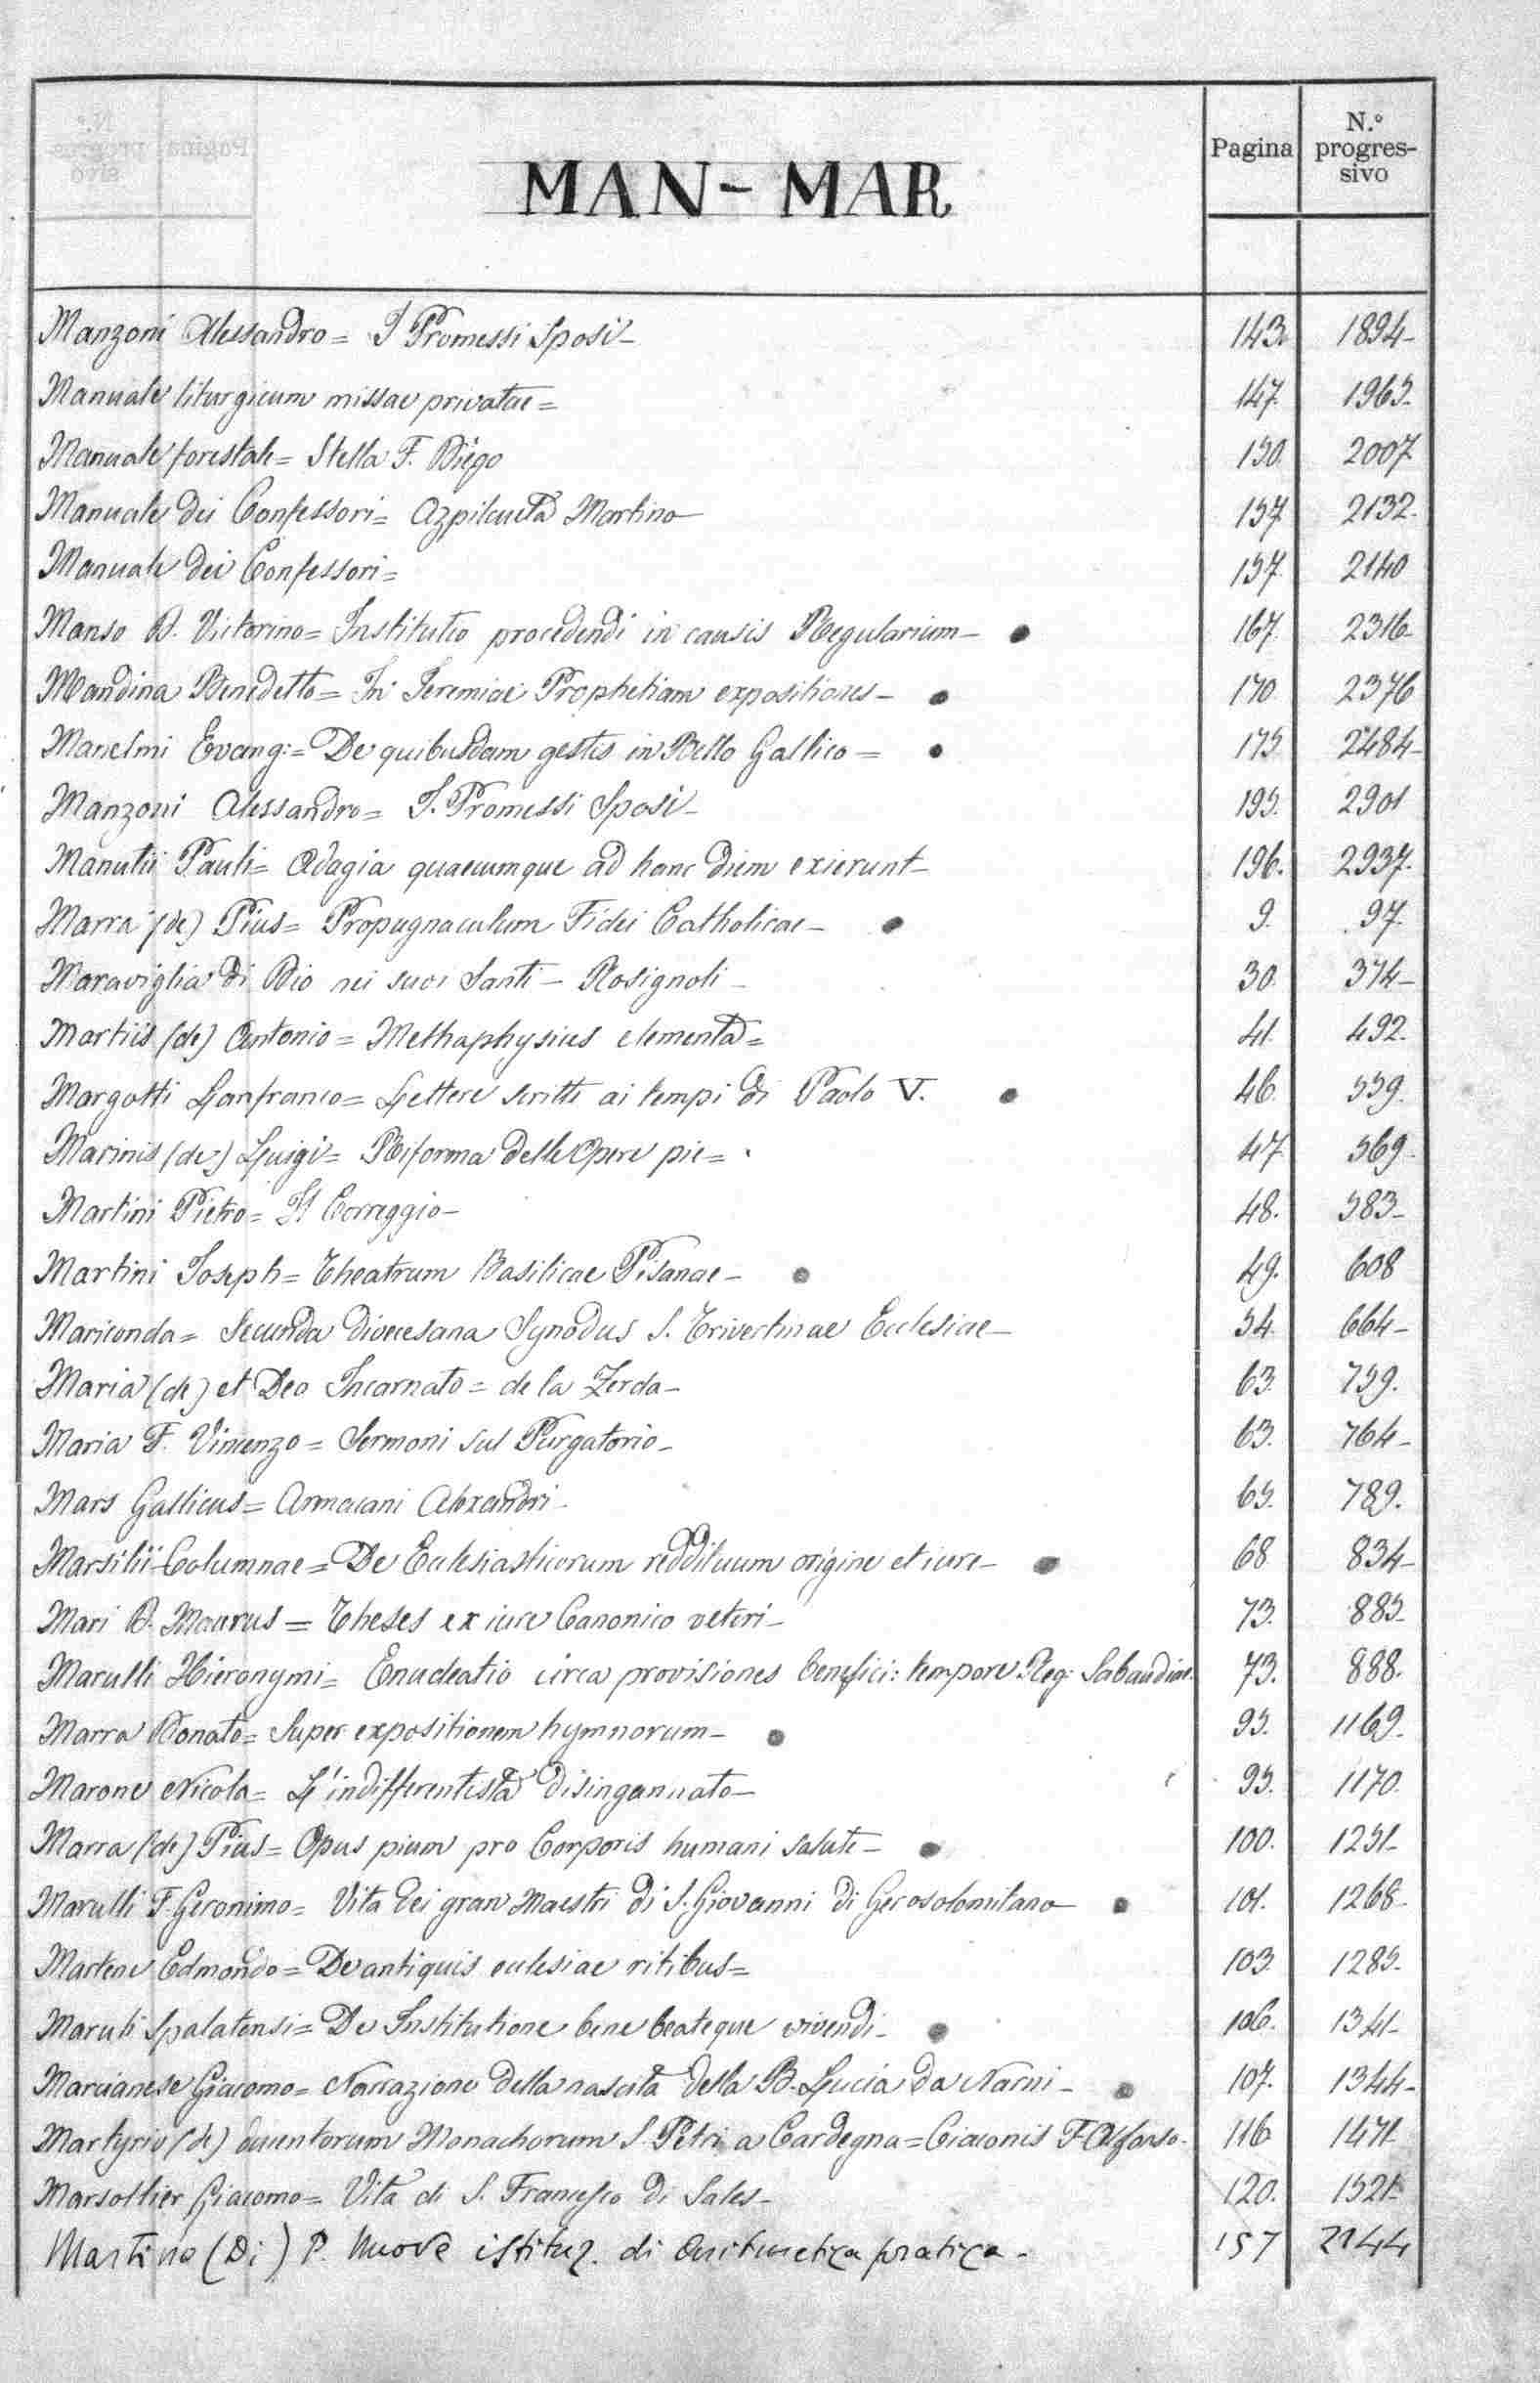 Pagina N.º progres-sivo
MAN - MAR
Manzoni Alessandro = I Promessi Sposi - 143. 1894-
Manuale liturgicum missae privatae = 147. 1965-
Manuale forestale = Stella F. Diego 150. 2007
Manuale dei Confessori = Azpilcueta Martino - 157 2132.
Manuale dei Confessori = 157. 2140
Manso D. Victorino = Institutio procedendi in causis Regularium - 167. 2316-
Mandina Benedetto = In Jeremiae Prophetiam expositiones - 170. 2376
Manelmi Evang: = De quibusdam gestis in Bello Gallico = 175. 2484-
Manzoni Alessandro = I. Promessi Sposi - 195. 2901
Manutii Pauli = Adagia quaecumque ad hanc diem exierunt - 196. 2937.
Marra (de) Pius = Propugnaculum Fidei Catholicae - 9. 97.
Maraviglia di Dio nei suoi Santi - Rosignoli - 30. 374-
Martiis (de) Antonio = Methaphysices elementa = 41. 492.
Margotti Lanfranco = Lettere scritte ai tempi di Paolo V. 46. 559.
Marinis (de) Luigi = Riforma delle Opere pie = 47. 569-
Martini Pietro = Il Correggio - 48. 583-
Martini Joseph = Theatrum Basilicae Pisanae - 49. 608
Mariconda = Secunda diocesana Synodus S. Trivertinae Ecclesiae - 54. 664-
Maria (de) et Deo Incarnato = de la Zerda - 63. 759.
Maria F. Vincenzo = Sermoni sul Purgatorio - 63. 764-
Mars Gallicus = Armacani Alexandri - 65. 789.
Marsilii Columnae = De Ecclesiasticorum reddituum origine et iure - 68 834-
Mari D. Maurus = Theses ex iure Canonico veteri - 73. 885-
Marulli Hieronymi = Enucleatio circa provisiones benefici: tempore Reg: Sabaudiae. 73. 888.
Marra Donato = Super expositionem hymnorum - 95. 1169.
Marone Nicola = L'indifferentista disingannato - 95. 1170.
Marra (de) Pius = Opus pium pro Corporis humani salute - 100. 1251-
Marulli F. Geronimo = Vita dei gran Maestri di S. Giovanni di Gerosolomitano 101. 1268-
Martene Edmondo = De antiquis ecclesiae ritibus = 103. 1285.
Maruli Spalatensi = De Institutione bene beateque vivendi - 106. 1341-
Marcianese Giacomo = Narrazione della nascita della B. Lucia da Narni - 107. 1344-
Martyrio (de) ducentorum Monachorum S. Petri a Cardegna = Ciaconis F. Alfonso - 116 1471-
Marsollier Giacomo = Vita di S. Francesco di Sales - 120. 1521-
Martino (Di) P. Nuove istituz. di Aritmetica pratica - 157 2144